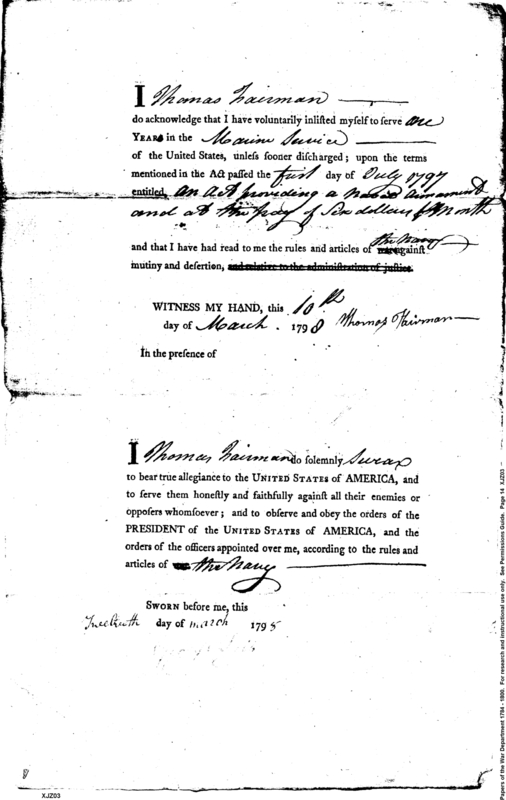 I Thomas Fairman
do acknowledge that I have voluntarily inlisted myself to serve one
YEAR in the Marine Service
of the United States, unless sooner discharged; upon the terms
mentioned in the Act passed the first day of July 1797
entitled, an act providing a Naval Armament
and at the pay of Six dollars Month
and that I have had read to me the rules and articles of the Navy against
mutiny and desertion, and relative to the administration of justice.
WITNESS MY HAND, this 10th
day of March. 1798 Thomas Fairman
In the presence of
I Thomas Fairman do solemnly Swear
to bear true allegiance to the UNITED STATES OF AMERICA, and
to serve them honestly and faithfully against all their enemies or
opposers whomsoever; and to observe and obey the orders of the
PRESIDENT of the UNITED STATES OF AMERICA, and the
orders of the officers appointed over me, according to the rules and
articles of the Navy
SWORN before me, this
day of march 1798
XJZ03
Papers of the War Department 1784 - 1800. For research and instructional use only. See Permissions Guide. Page 14 XJZ03